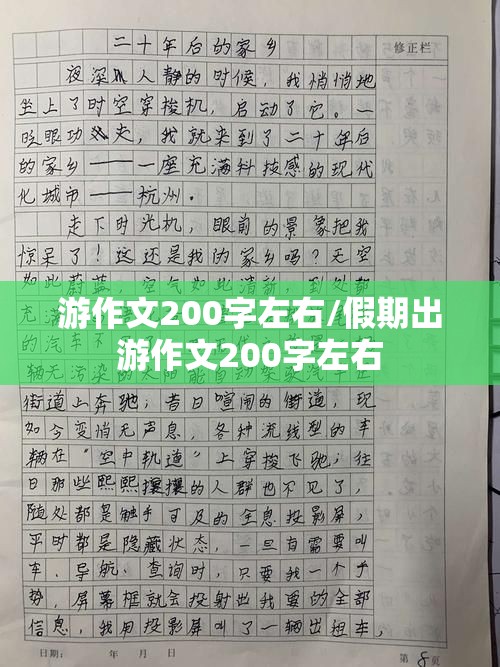 二十年后的家乡
修正栏
夜深人静的时候，我悄悄地
坐上了时空穿梭机，启动了它。一
眨眼功夫，我就来到了二十年后
的家乡——一座充满科技感的现代
化城市——杭州。
走下时光机，眼前的景象把我
惊呆了！这还是我的家乡吗？天空
如此蔚蓝，空气如此清新，到处都
充满
游作文200字左右/假期出
游作文200字左右
的汽车不
辆无污染的太阳能自动驾驶汽车在
街道上奔驰；昔日喧闹的街道，现
如今变悄无声息，各种流线型的车
辆在“空中轨道”上穿梭飞驰；往
日那些熙熙攘攘的人群也不见了，
随处都是触手可及的全息投影屏，
平时都是隐藏状态，一旦有需要叫
车、导航、查询时，只要我一个手
势，屏幕框就会投射出我要的全部
信息，我用投影屏叫了一辆出租车，
日期： 年 月 日 第 8 页